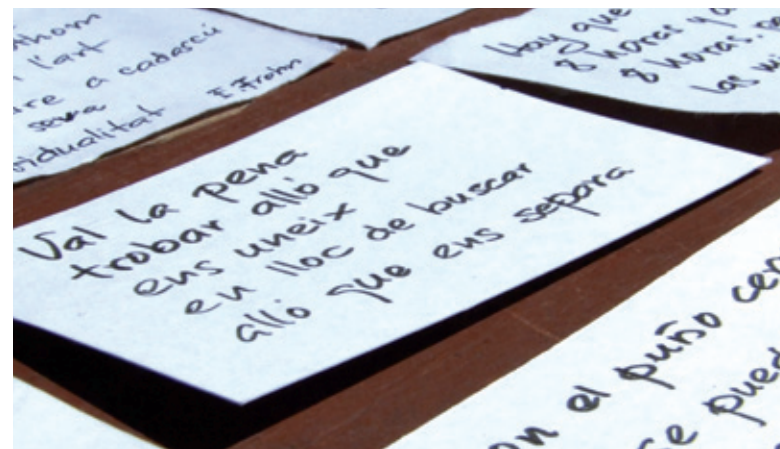 l'art
a cadascú
seva
E. Fromm
Hay que
8 horas y
8 horas,
las
Val la pena
trobar allò que
ens uneix
en lloc de buscar
allò que ens separa
el puño
se